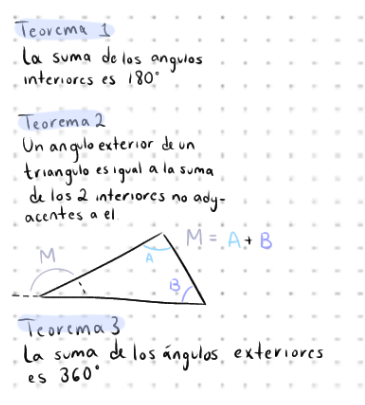 Teorema 1
La suma de los angulos
interiores es 180°
Teorema 2
Un angulo exterior de un
triangulo es igual a la suma
de los 2 interiores no ady-
acentes a el
M = A + B
M
A
B
Teorema 3
La suma de los ángulos exteriores
es 360°